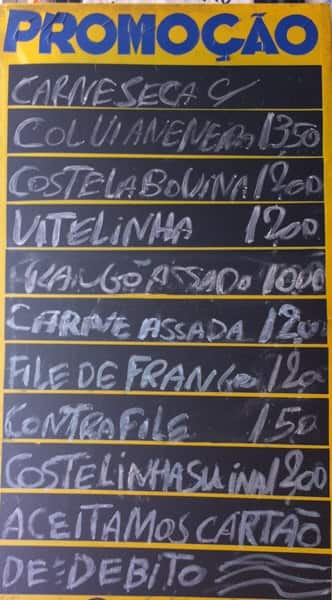 PROMOÇÃO
CARNE SECA C/
COLVIANENEIRA 13,50
COSTELA BOVINA 12,00
VITELINHA 12,00
FRANGO ASSADO 10,00
CARNE ASSADA 12,00
FILE DE FRANGO 12,00
CONTRA FILE 15,0
COSTELINHA SUINA 12,00
ACEITAMOS CARTÃO
DE DEBITO